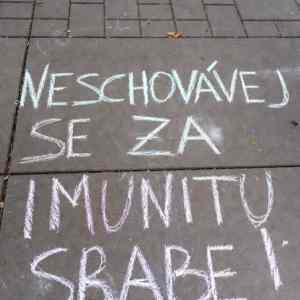 NESCHOVÁVEJ
SE ZA
IMUNITU
SRABE!